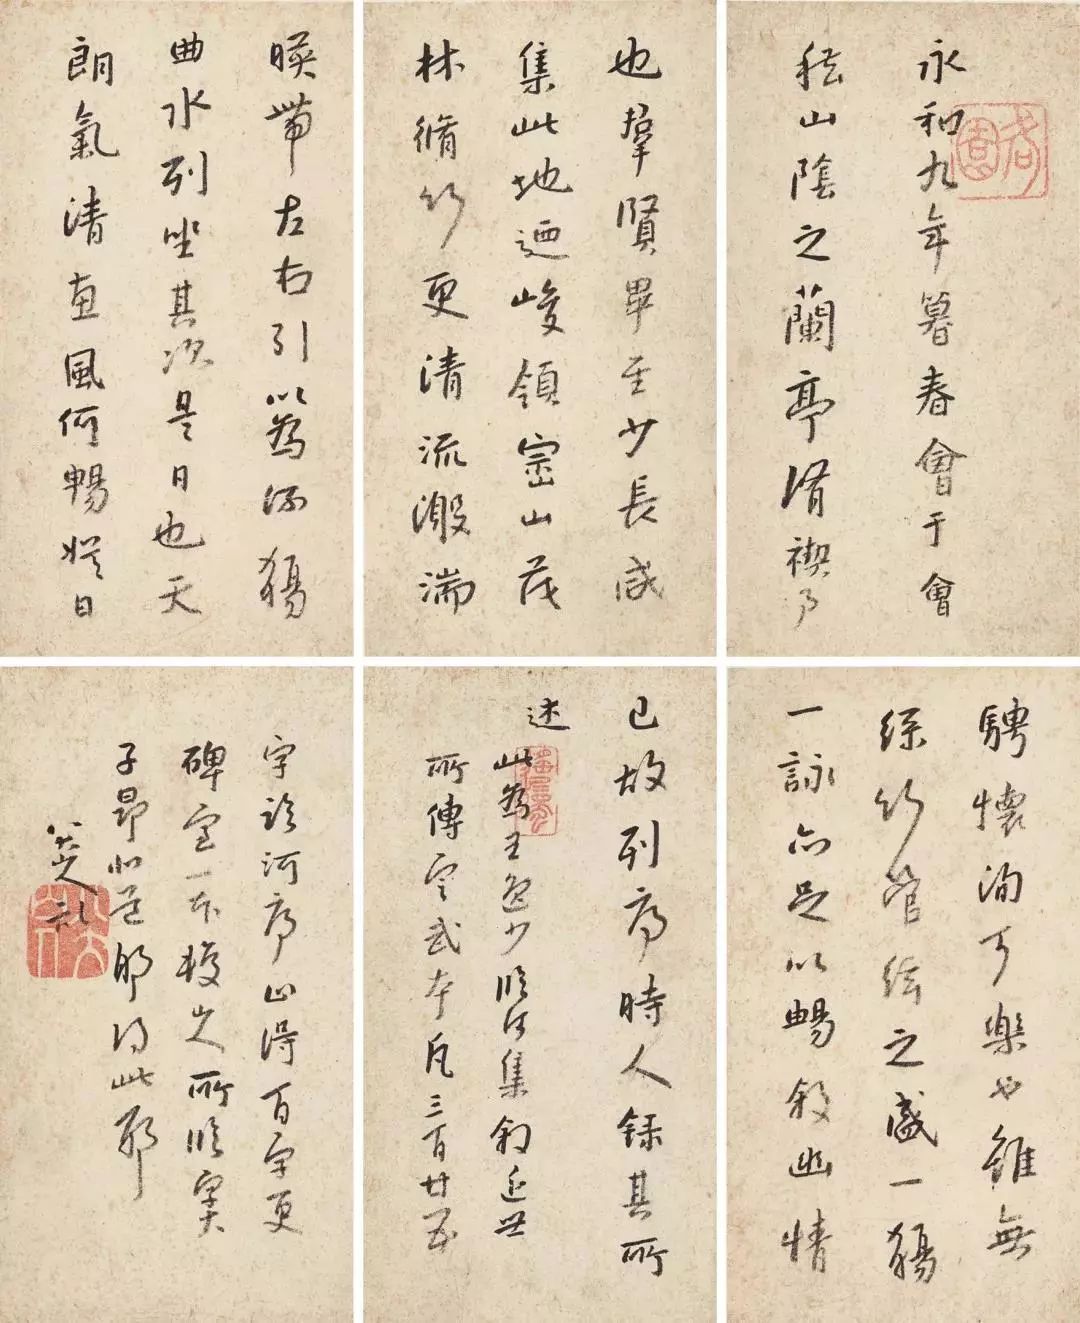 永和九年暮春會于會
稽山陰之蘭亭脩禊事
也羣賢畢至少長咸
集此地迺峻領崇山茂
林脩竹更清流激湍
暎帶左右引以為流觴
曲水列坐其次是日也天
朗氣清惠風何暢娛目
騁懷洵可樂也雖無
絲竹管絃之盛一觴
一詠亦足以暢敘幽情
已故列序時人錄其所
述
此為王逸少臨河集叙近世
所傳定武本凡三百廿五
字臨河序止得百字更
碑定一本
子昂此耶
八大